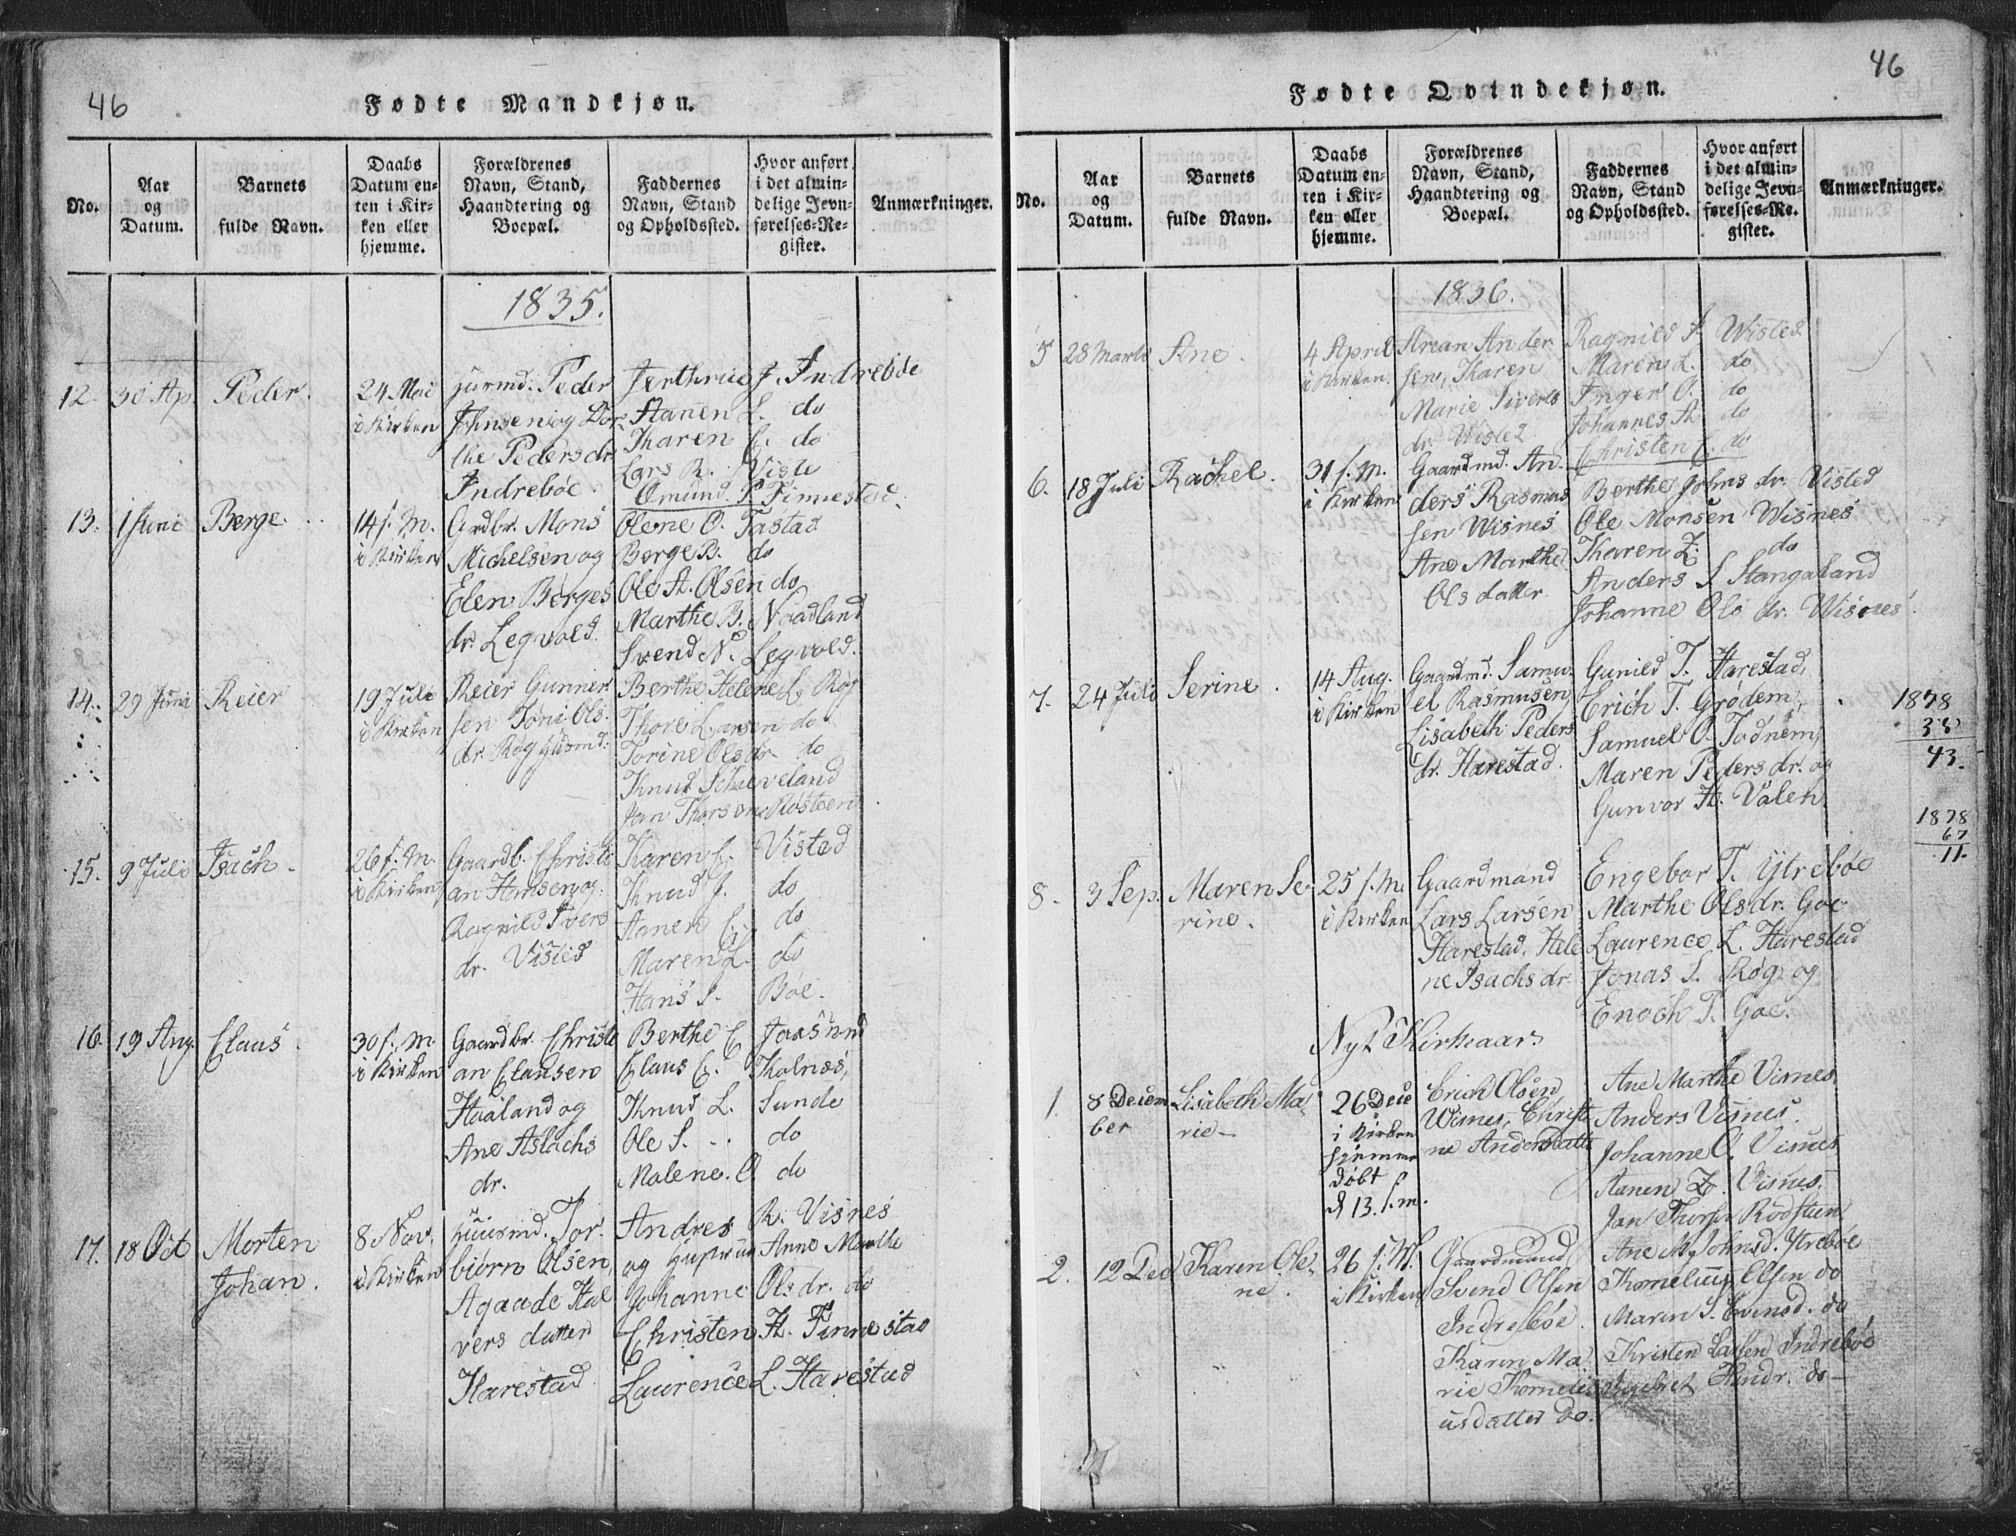 46
Fødte Mandkjøn.
No.
Aar
og
Datum.
Barnets
fulde Navn.
Daabs
Datum en-
ten i Kir-
ken eller
hjemme.
Forældrenes
Navn, Stand,
Haandtering og
Boepæl.
Faddernes
Navn, Stand
og Opholdssted.
Hvor anført
i det almin-
delige Jevn-
førelses-Re-
gister.
Anmærkninger.
1835.
12. 30 Ap. Peder.
24 Mai
i Kirken
Huusmd. Peder
Johnsen og Dor-
the Peders dr.
Indreböe.
Jerthrud J. Indreböe
Hanen L. do
Karen C. do
Lars R. Viste
Omund P Finnestad.
13. 1 Juni Berge.
14 f. M.
i Kirken
Grdbr. Mons
Michelsen og
Elen Berges
dr. Legvold.
Olene O. Tastad
Berge B. do
Ole A. Olsen do
Marthe B. Nordland
Svend N. Legvold.
14. 29 Juni Reier
19 Juli
i Kirken
Reier Gunner
sen Toni Ols.
dr. Røg Husmd:
Berthe Helene L. Røg
Thore Larsen do
Torine Ols dr. do
Knud Schieveland
Jan Thorsen Rosteen
15. 9 Juli Isach.
26 f. M.
i Kirken
Gaardb. Christi
an Hansen og
Ragnild Ivers
dr. Visted
Karen C. Visted
Knud J. do
Hanen C. do
Maren L. do
Hans I. Böe.
16. 19 Aug. Claus.
30 f. M.
i Kirken
Gaardbr. Christi
an Clausen
Haaland og
Ane Aslachs
dr.
Berthe C Jaasund
Claus C. Kolnæs,
Knud L. Sunde
Ole S. do
Malene. O do
17. 18 Oct Morten
Johan.
8 Nov.
i Kirken
Huusmd. Tor
biörn Olsen
Agaade Hal
vers datter
Harestad
Andres R. Visnes
og Hustrue Anne Marthe
Johanne Ols dr. do
Christen H. Finnestad
Laurence L. Harestad
46
Fødte Qvindekjøn.
No.
Aar
og
Datum.
Barnets
fulde Navn.
Daabs
Datum en-
ten i Kir-
ken eller
hjemme.
Forældrenes
Navn, Stand,
Haandtering og
Boepæl.
Faddernes
Navn, Stand
og Opholdssted.
Hvor anført
i det almin-
delige Jevn-
førelses-Re-
gister.
Anmærkninger.
1836.
5 28 Marts Ane.
4 April
i Kirken.
Arian Ander
sen, Karen
Marie Siverts
dr. Wisted
Ragnild A. Wisted
Maren L. do
Inger O. do
Johannes A do
Christen C. do
6. 18 Juli Rachel.
31 f. M.
i Kirken
Gaardmd. An-
ders Rasmus
sen Wisnes
Ane Marthe
Ols datter
Berthe Johns dr. Visted
Ole Monsen Wisnes
Karen Z. do
Anders S Stangaland
Johanne Ols dr. Wisnes.
7. 24 Juli Serine.
14 Aug.
i Kirken
Gaardmd. Samu-
el Rasmusen,
Lisabeth Peders
dr. Harestad.
Gunild T. Harestad,
Erich T. Grödem,
Samuel O. Todnem,
Maren Peders dr. og
Gunvor H. Valen.
1878
35
43.
1878
67
11.
8. 3 Sep. Maren Se-
rine.
25 f. M.
i Kirken
Gaardmand
Lars Larsen
Harestad, Hele
ne Isachs dr.
Engebor T. Ytreböe
Marthe Ols dr. Goe
Laurence L. Harestad
Jonas S. Røg og
Enoch T. Goe.
Nyt Kirkeaar
1. 8 Decem
ber
Lisabeth Ma-
rie-
26 Dece
i Kirken
hjemme
döbt
d 13. f. m.
Erich Olsen
Wisnes, Christi
ne Andersdatte
Ane Marthe Visnes.
Anders Visnes.
Johanne O. Visnes
Hanen Z. Visnes.
Jan Thorsen Rodsteen
2. 12 Dec Karen Ole-
ne.
26 f. M.
i Kirken
Gaardmand
Svend Olsen
Indreböe.
Karen Ma-
rie Korneli
usdatter do.
Ane M. Johnsd. Ytreböe
Kornelius Olsen do
Maren S. Evensd. do
Kristen Larsen Indreböe
Ingebret Hendr. do-